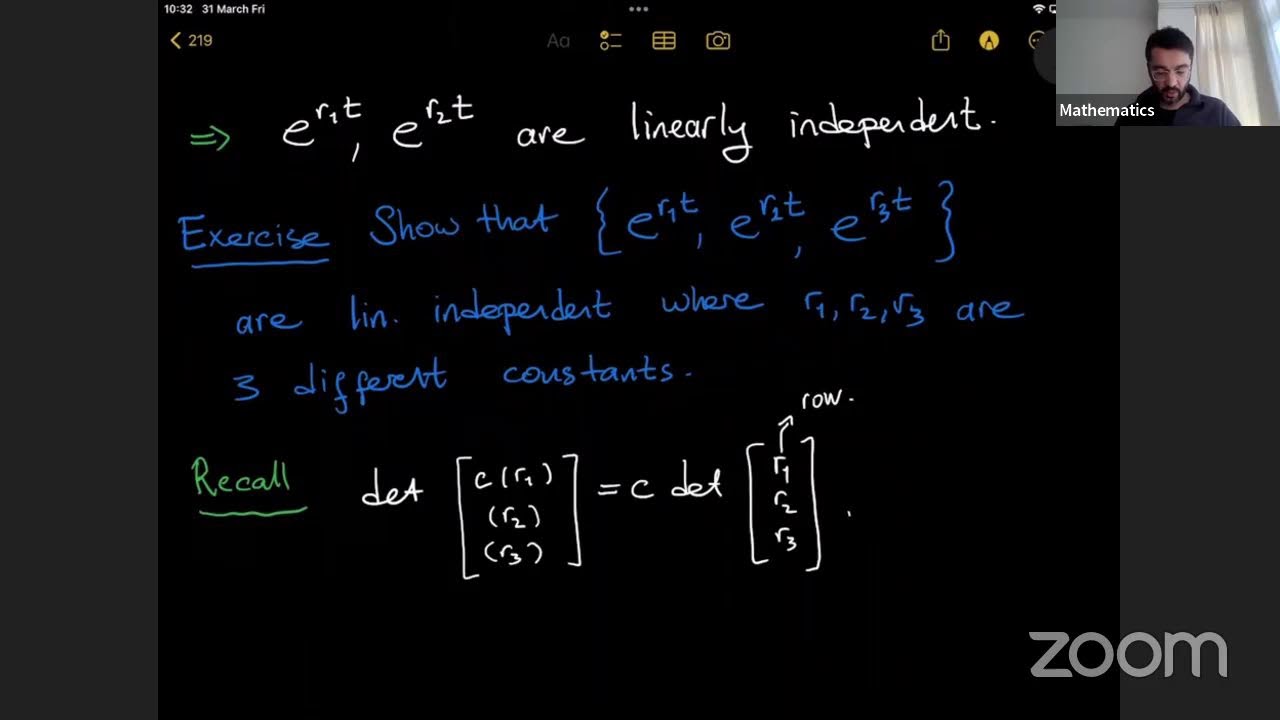 10:32 31 March Fri
219
Aa
Mathematics
⇒ e^{r₁t}, e^{r₂t} are linearly independent.
Exercise Show that {e^{r₁t}, e^{r₂t}, e^{r₃t}}
are lin. independent where r₁, r₂, r₃ are
3 different constants.
row.
Recall det [c(r₁) (r₂) (r₃)] = c det [r₁ r₂ r₃].
zoom